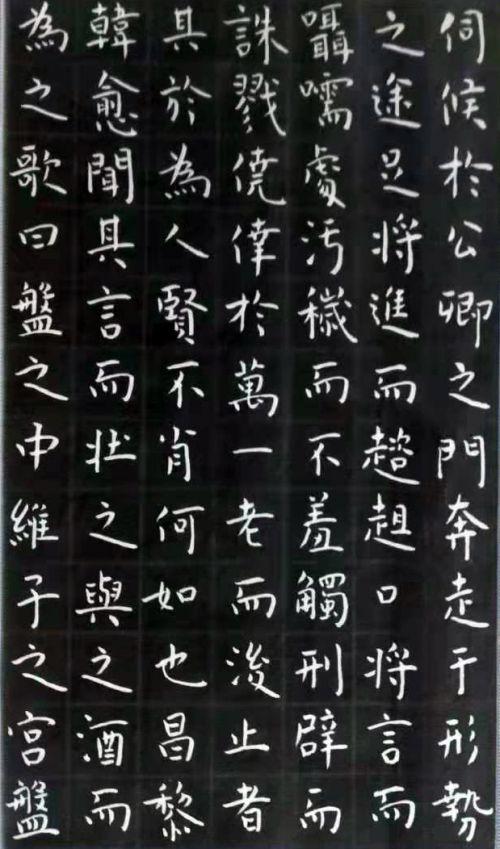 伺候於公卿之門奔走于形勢
之途足将進而趑趄口将言而
囁嚅處污穢而不羞觸刑辟而
誅戮僥倖於萬一老而後止者
其於為人賢不肖何如也昌黎
韓愈聞其言而壮之與之酒而
為之歌曰盤之中維子之宮盤